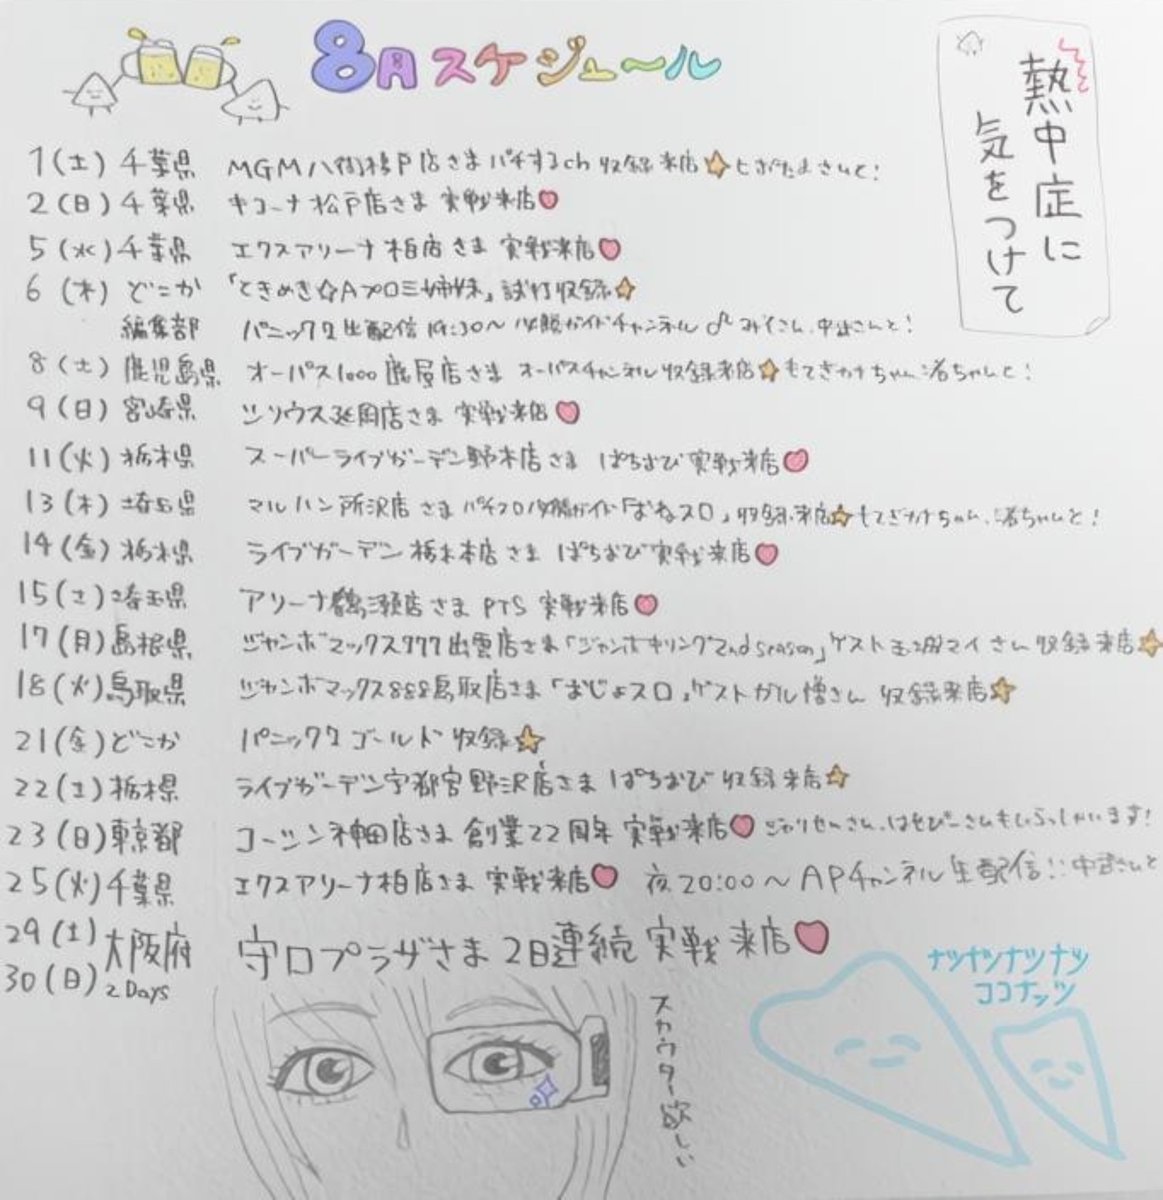 8月スケジュール
熱中症に
気をつけて
1(土) 千葉県 MGM八街榎戸店さま パチするch 収録来店 七さがたまさんと!
2(日) 千葉県 キコーナ松戸店さま 実戦来店
5(水) 千葉県 エクスアリーナ柏店さま 実戦来店
6(木) どこか 「ときめき☆Aプロ三姉妹」試打収録
編集部 パニック7生配信 19:30〜 必勝ガイドチャンネル さん、中武さんと!
8(土) 鹿児島県 オーパス1000鹿屋店さま オーパスチャンネル 収録来店 もてぎカナちゃん、渚ちゃんと!
9(日) 宮崎県 シリウス延岡店さま 実戦来店
11(火) 栃木県 スーパーライブガーデン野木店さま ぱちおび 実戦来店
13(木) 埼玉県 マルハン所沢店さま パチスロ必勝ガイド「おねスロ」収録来店 もてぎカナちゃん、渚ちゃんと!
14(金) 栃木県 ライブガーデン栃木本店さま ぱちおび 実戦来店
15(土) 埼玉県 アリーナ鶴瀬店さま PTS 実戦来店
17(月) 島根県 ジャンボマックス777出雲店さま「ジャンボキリング2nd season」ゲスト玉城マイさん 収録来店
18(火) 鳥取県 ジャンボマックス888鳥取店さま「おじょスロ」ゲストガル憎さん 収録来店
21(金) どこか パニック7ゴールド 収録
22(土) 栃木県 ライブガーデン宇都宮野沢店さま ぱちおび 収録来店
23(日) 東京都 コーシン神田店さま 創業22周年 実戦来店 じゃりせんさん、はせぴーさんもいらっしゃいます!
25(火) 千葉県 エクスアリーナ柏店さま 実戦来店 夜20:00〜APチャンネル生配信!! 中武さんと
29(土)
30(日) 大阪府 2Days 守口プラザさま 2日連続 実戦来店
スカウター欲しい
ナツナツナツナツ
ココナッツ